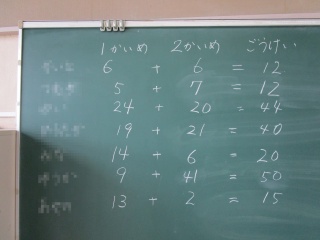 1かいめ 2かいめ ごうけい
6 + 6 = 12
5 + 7 = 12
24 + 20 = 44
19 + 21 = 40
14 + 6 = 20
9 + 41 = 50
13 + 2 = 15